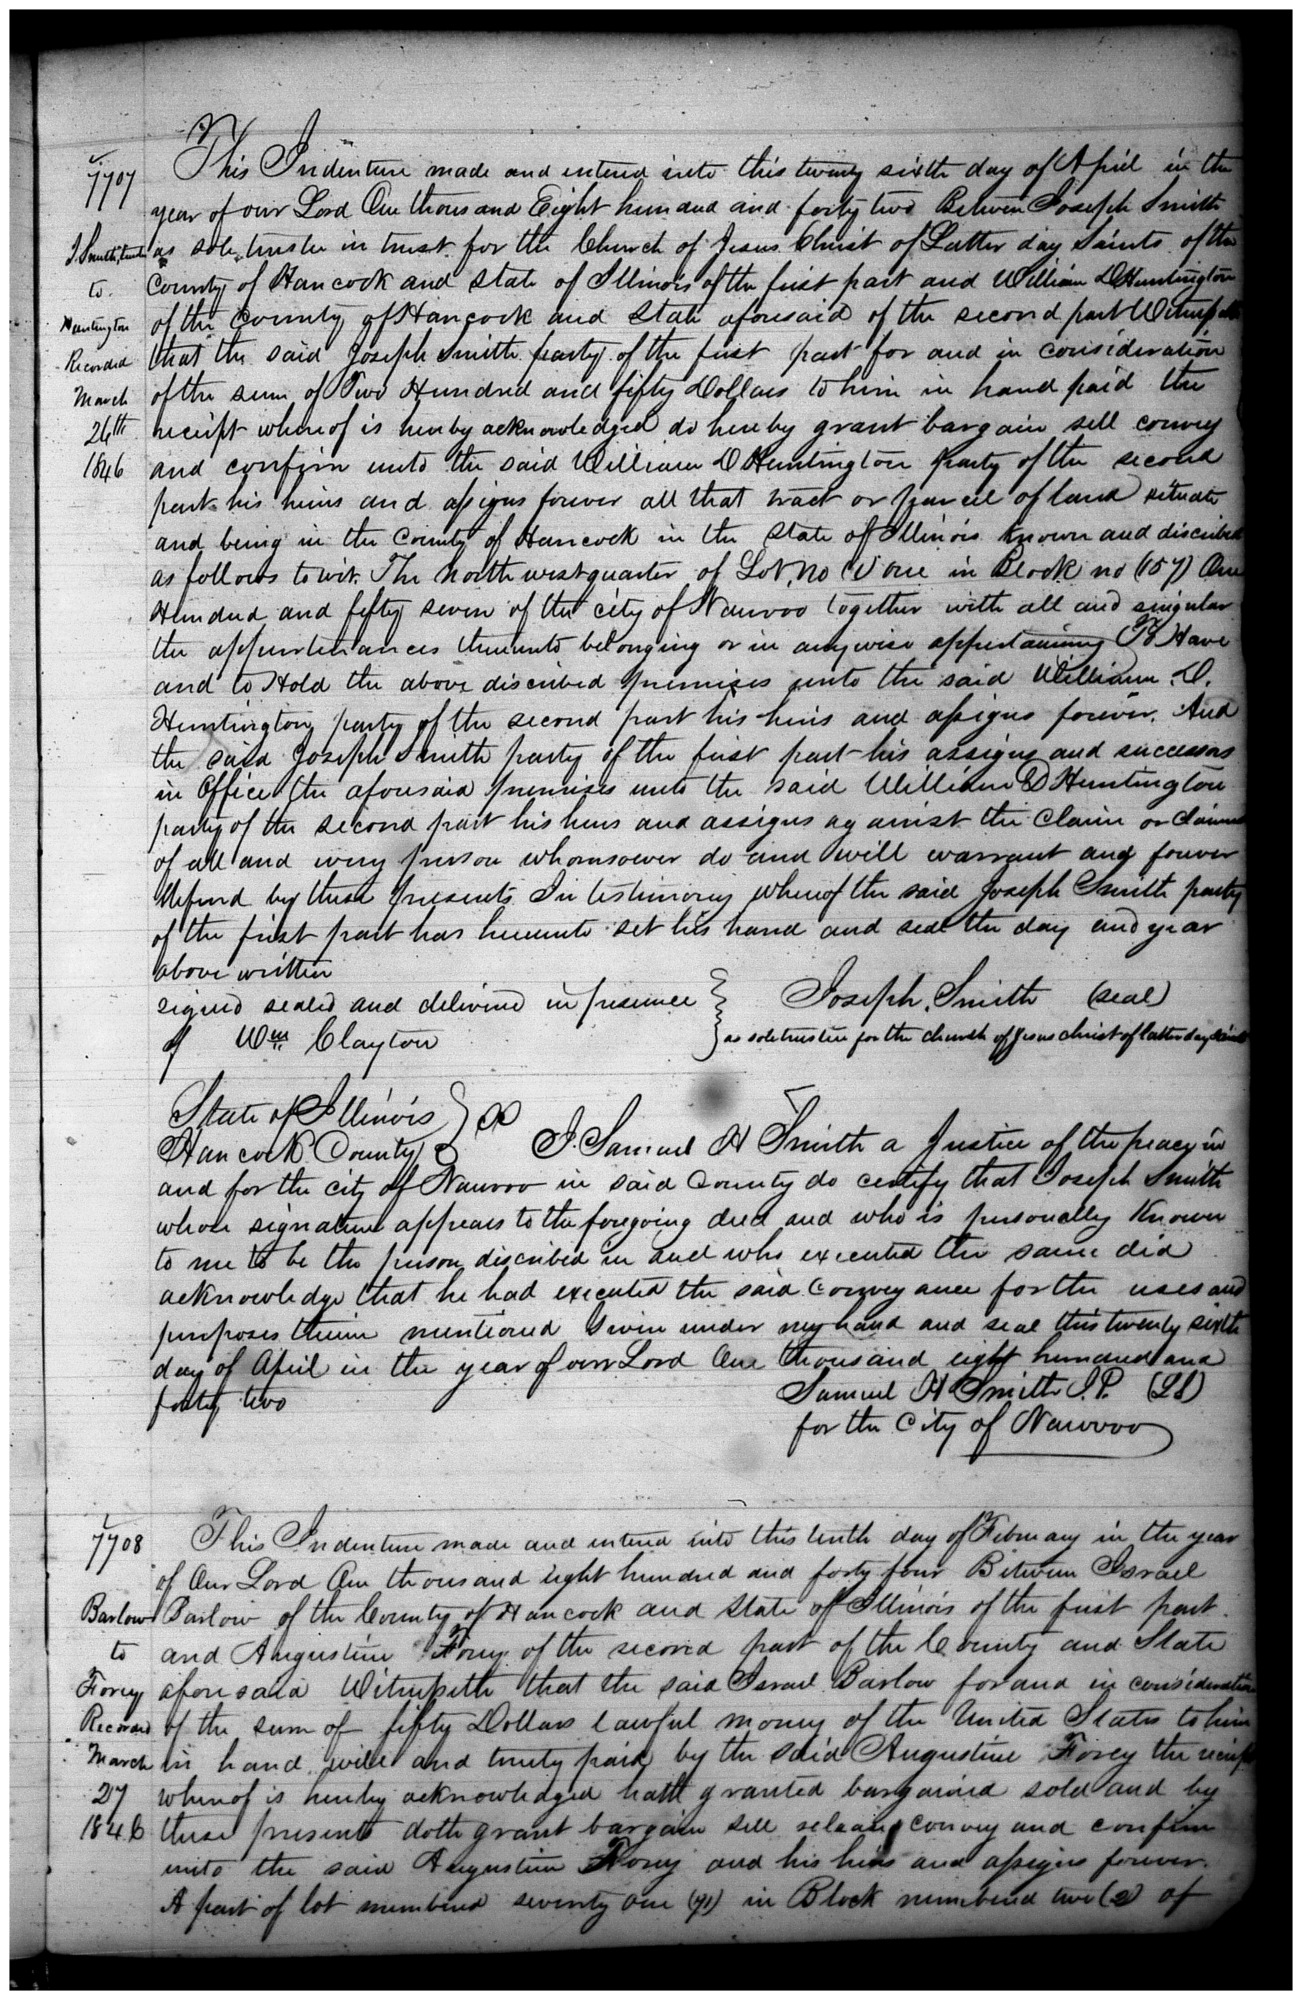 7707
J. Smith, trustee
to
Huntington
Recorded
March
26th
1846
This Indenture made and entered into this twenty sixth day of April in the
year of our Lord One thousand Eight hundred and forty two Between Joseph Smith
as sole trustee in trust for the Church of Jesus Christ of Latter day Saints of the
County of Hancock and State of Illinois of the first part and William D Huntington
of the County of Hancock and State aforesaid of the second part Witnesseth
that the said Joseph Smith party of the first part for and in consideration
of the sum of Two Hundred and fifty Dollars to him in hand paid the
receipt whereof is hereby acknowledged do hereby grant bargain sell convey
and confirm unto the said William D Huntington party of the second
part his heirs and assigns forever all that tract or parcel of land situate
and being in the County of Hancock in the State of Illinois known and discribed
as follows towit. The north west quarter of Lot no (1) one in Block no (157) One
Hundred and fifty seven of the city of Nauvoo together with all and singular
the appurtenances thereunto belonging or in anywise appertaining To Have
and to Hold the above discribed premises unto the said William D.
Huntington party of the second part his heirs and assigns forever. And
the said Joseph Smith party of the first part his assigns and successors
in Office the aforesaid premises unto the said William D Huntington
party of the second part his heirs and assigns against the Claim or Claims
of all and every person whomsoever do and will warrant and forever
defend by these presents In testimony whereof the said Joseph Smith party
of the first part has hereunto set his hand and seal the day and year
above written
signed sealed and delivered in presence } Joseph Smith (seal)
of Wm Clayton } as sole trustee for the church of Jesus Christ of latter day saints
State of Illinois } SS
Hancock County } I. Samuel H Smith a Justice of the peace in
and for the city of Nauvoo in said County do certify that Joseph Smith
whose signature appears to the foregoing deed and who is personally Known
to me to be the person discribed in and who executed the same did
acknowledge that he had executed the said Conveyance for the uses and
purposes therein mentioned Given under my hand and seal this twenty sixth
day of April in the year of our Lord One thousand eight hundred and
forty two Samuel H Smith J.P. (LS)
for the City of Nauvoo
7708
Barlow
to
Forey
Recorded
March
27
1846
This Indenture made and entered into this tenth day of February in the year
of Our Lord One thousand eight hundred and forty four Between Israel
Barlow of the County of Hancock and State of Illinois of the first part
and Augustine Forey of the second part of the County and State
aforesaid Witnesseth that the said Israel Barlow for and in consideration
of the sum of fifty Dollars lawful money of the United States to him
in hand well and truly paid by the said Augustine Forey the receipt
whereof is hereby acknowledged hath granted bargained sold and by
these presents doth grant bargain sell release convey and confirm
unto the said Augustine Forey and his heirs and assigns forever.
A part of lot numbered seventy one (71) in Block numbered two (2) of